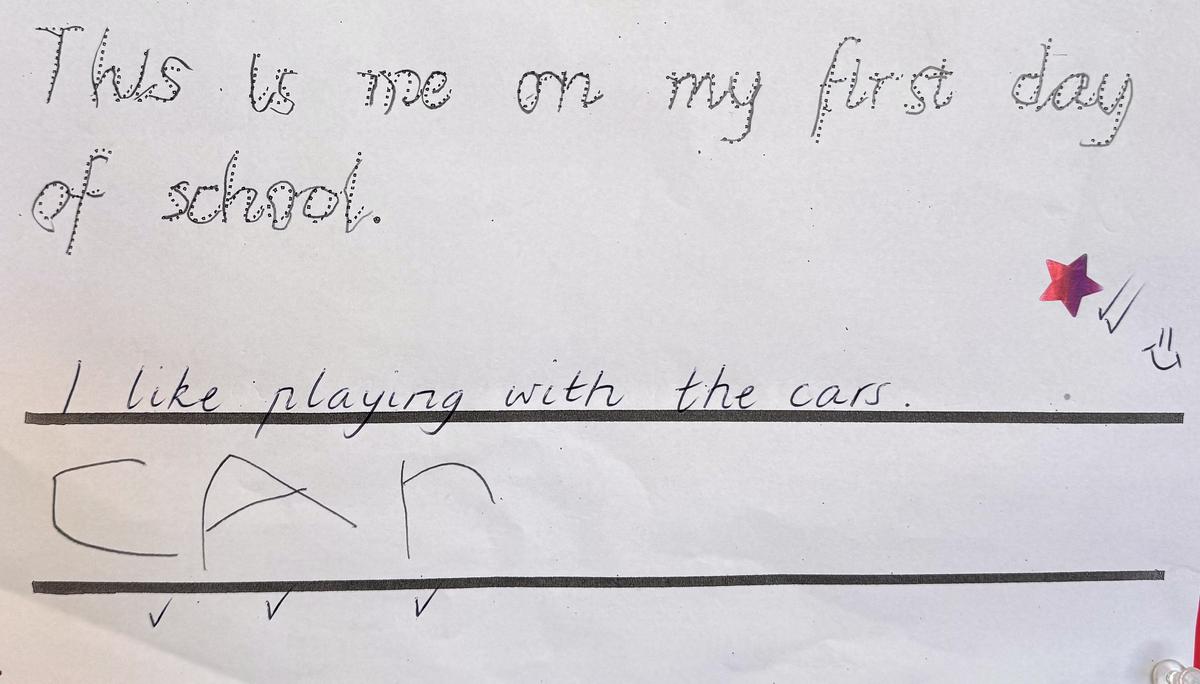 This is me on my first day
of school.
I like playing with the cars.
CAr